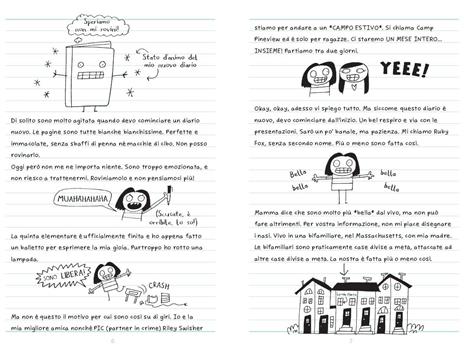 Speriamo
non mi rovini!
Stato d'animo del
mio nuovo diario
Di solito sono molto agitata quando devo cominciare un diario
nuovo. Le pagine sono tutte bianche bianchissime. Perfette e
immacolate, senza sbaffi di penna né macchie di cibo. Non posso
rovinarlo.
Oggi però non me ne importa niente. Sono troppo emozionata, e
non riesco a trattenermi. Roviniamolo e non pensiamoci più!
MUAHAHAHAHA
(Scusate, è
orribile, lo so!)
La quinta elementare è ufficialmente finita e ho appena fatto
un balletto per esprimere la mia gioia. Purtroppo ho rotto una
lampada.
SONO LIBERA!
CRASH
Ma non è questo il motivo per cui sono così su di giri. Io e la
mia migliore amica nonché PIC (partner in crime) Riley Swisher
6
stiamo per andare a un *CAMPO ESTIVO*. Si chiama Camp
Pineview ed è solo per ragazze. Ci staremo UN MESE INTERO...
INSIEME! Partiamo tra due giorni.
YEEE!
Okay, okay, adesso vi spiego tutto. Ma siccome questo diario è
nuovo, devo cominciare dall'inizio. Un bel respiro e via con le
presentazioni. Sarò un po' banale, ma pazienza. Mi chiamo Ruby
Fox, senza secondo nome. Più o meno sono fatta così.
Bella
Bella
bella
bella
Mamma dice che sono molto più *bella* dal vivo, ma non può
fare altrimenti. Per vostra informazione, non mi piace disegnare
i nasi. Vivo in una bifamiliare, nel Massachusetts, con mia madre.
Le bifamiliari sono praticamente case divise a metà, attaccate ad
altre case divise a metà. La nostra è fatta più o meno così.
7